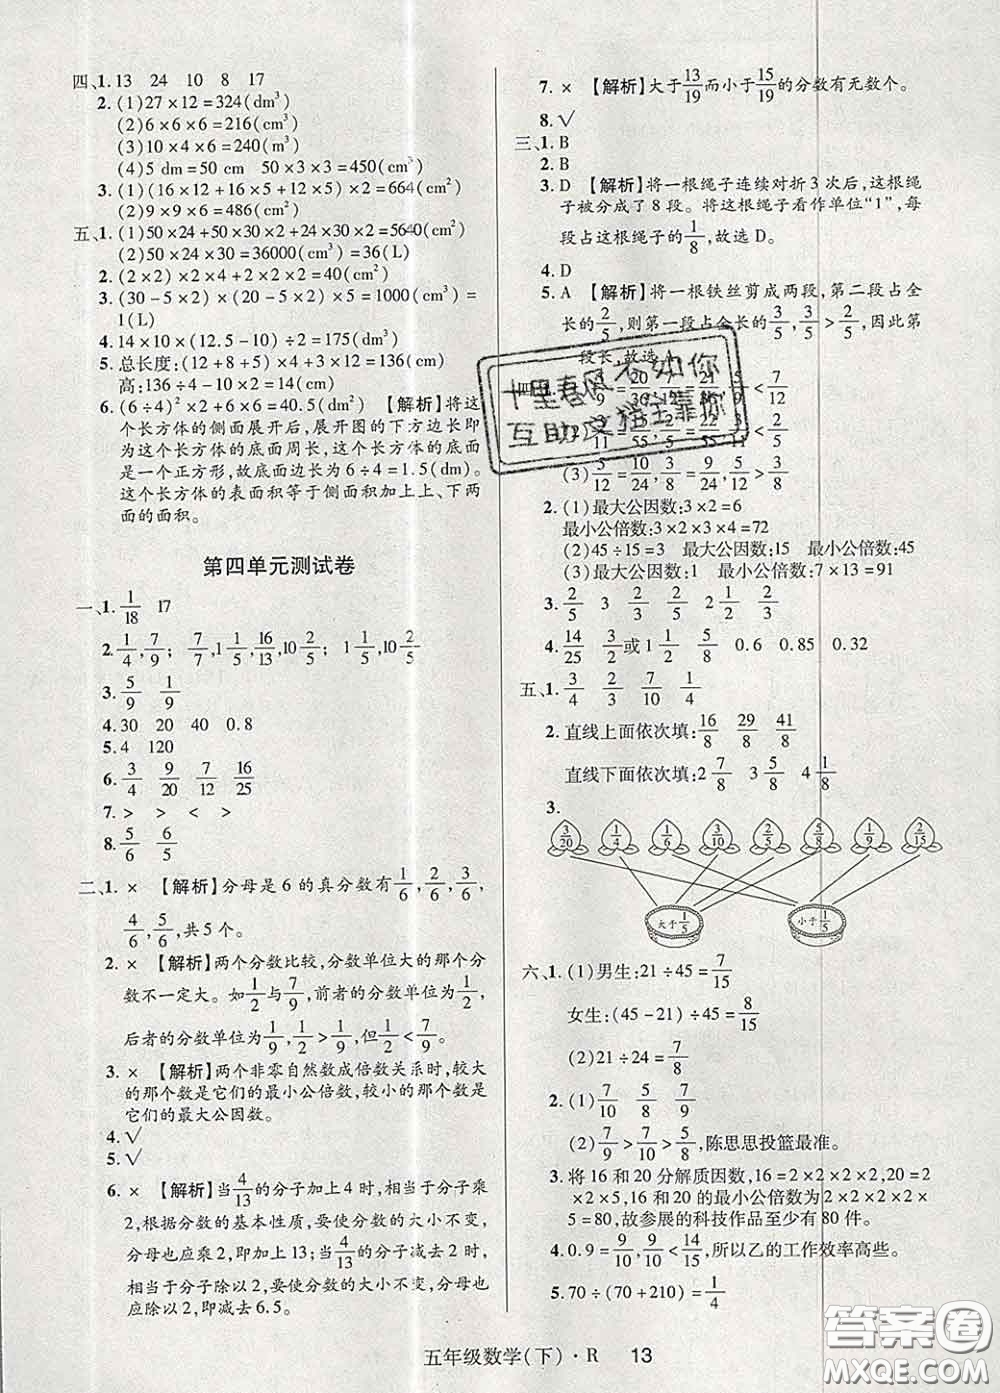 四、1. 13 24 10 8 17
2. (1)27×12=324(dm²)
(2)6×6×6=216(cm³)
(3)5×6×8=240(m³)
(4)5 dm=50 cm 50×3×3=450(cm³)
3. (1)(16×12+16×5+12×5)×2=664(cm²)
(2)9×9×6=486(cm²)
五、1. (1)50×24+50×30×2+24×30×2=5640(cm²)
(2)50×24×30=36000(cm³)=36(L)
2. (2×2)×2×4+2×2×2=40(cm²)
3. (30-5×2)×(20-5×2)×5=1000(cm³)=
1(L)
4. 14×10×(12.5-10)÷2=175(dm³)
5. 总长度:(12+8+5)×4+35×2+10×4
高:136÷4-12-8=14(cm)
6. (6÷4)²×2+6×6=40.5(dm²) 【解析】将这
个长方体的侧面展开后,展开图的下方边长即
为这个长方体的底面周长,这个长方体的底面
是一个正方形,故底面边长为6÷4=1.5(dm)。
这个长方体的表面积等于侧面积加上上、下两
面的面积。
第四单元测试卷
一、1. 1/18 17
2. 1/4,7/9; 7/7,1 1/5,16/13,10 2/5
3. 5/9 1/9
4. 30 20 40 0.8
5. 4 120
6. 3/4 9/20 7/12 16/25
7. > > < >
8. 5/6 6/5
二、1. × 【解析】分母是6的真分数有1/6,2/6,3/6,
4/6,5/6,共5个。
2. × 【解析】两个分数比较,分数单位大的那个分
数不一定大。如1/2与7/9,前者的分数单位为1/2,
后者的分数单位为1/9,1/2>1/9,但1/2<7/9。
3. × 【解析】两个非零自然数成倍数关系时,较大
的那个数是它们的最小公倍数,较小的那个数是
它们的最大公因数。
4. √
5. √
6. × 【解析】当4/13的分子加上4时,相当于分子乘
2,根据分数的基本性质,要使分数的大小不变,
分母也应乘2,即加上13;当4/13的分子减去2时,
相当于分子除以2,要使分数的大小不变,分母也
应除以2,即减去6.5。
7. × 【解析】大于13/19而小于15/19的分数有无数个。
8. √
三、1. B
2. B
3. D 【解析】将一根绳子连续对折3次后,这根绳
子被分成了8段。将这根绳子看作单位“1”,每
段占这根绳子的1/8,故选D。
4. D
5. A 【解析】将一根铁丝剪成两段,第二段占全
长的2/5,则第一段占全长的3/5,3/5>2/5,因此第
段长,故选
20 7/ 21/ 5/9<7/12
/11 /55,/5 22/55 /11<
(3)5/12=10/24,3/8=9/24,5/12>3/8
2. (1)最大公因数:3×2=6
最小公倍数:3×2×3×4=72
(2)45÷15=3 最大公因数:15 最小公倍数:45
(3)最大公因数:1 最小公倍数:7×13=91
3. 2/5 3 2/3 3 1/2 2/3
4. 14/25 3/2或1 1/2 5/8 0.6 0.85 0.32
五、1. 3/4 2/3 7/10 1/4
2. 直线上面依次填:16/8 29/8 41/8
直线下面依次填:2 7/8 3 5/8 4 1/8
3.
3/20 1/4 1/6 3/10 2/5 5/8 1/9 2/15
大于1/5 小于1/5
六、1. (1)男生:21÷45=7/15
女生:(45-21)÷45=8/15
(2)21÷24=7/8
2. (1)7/10 5/8 7/9
(2)7/9>7/10>5/8,陈思思投篮最准。
3. 将16和20分解质因数,16=2×2×2×2,20=2
×2×5,16和20的最小公倍数为2×2×2×2
×5=80,故参展的科技作品至少有80件。
4. 0.9=9/10,9/10<14/15,所以乙的工作效率高些。
5. 70÷(70+210)=1/4
十里春风不如你
互助文档全靠你
五年级数学(下)·R 13
答案圈
MXQE.COM